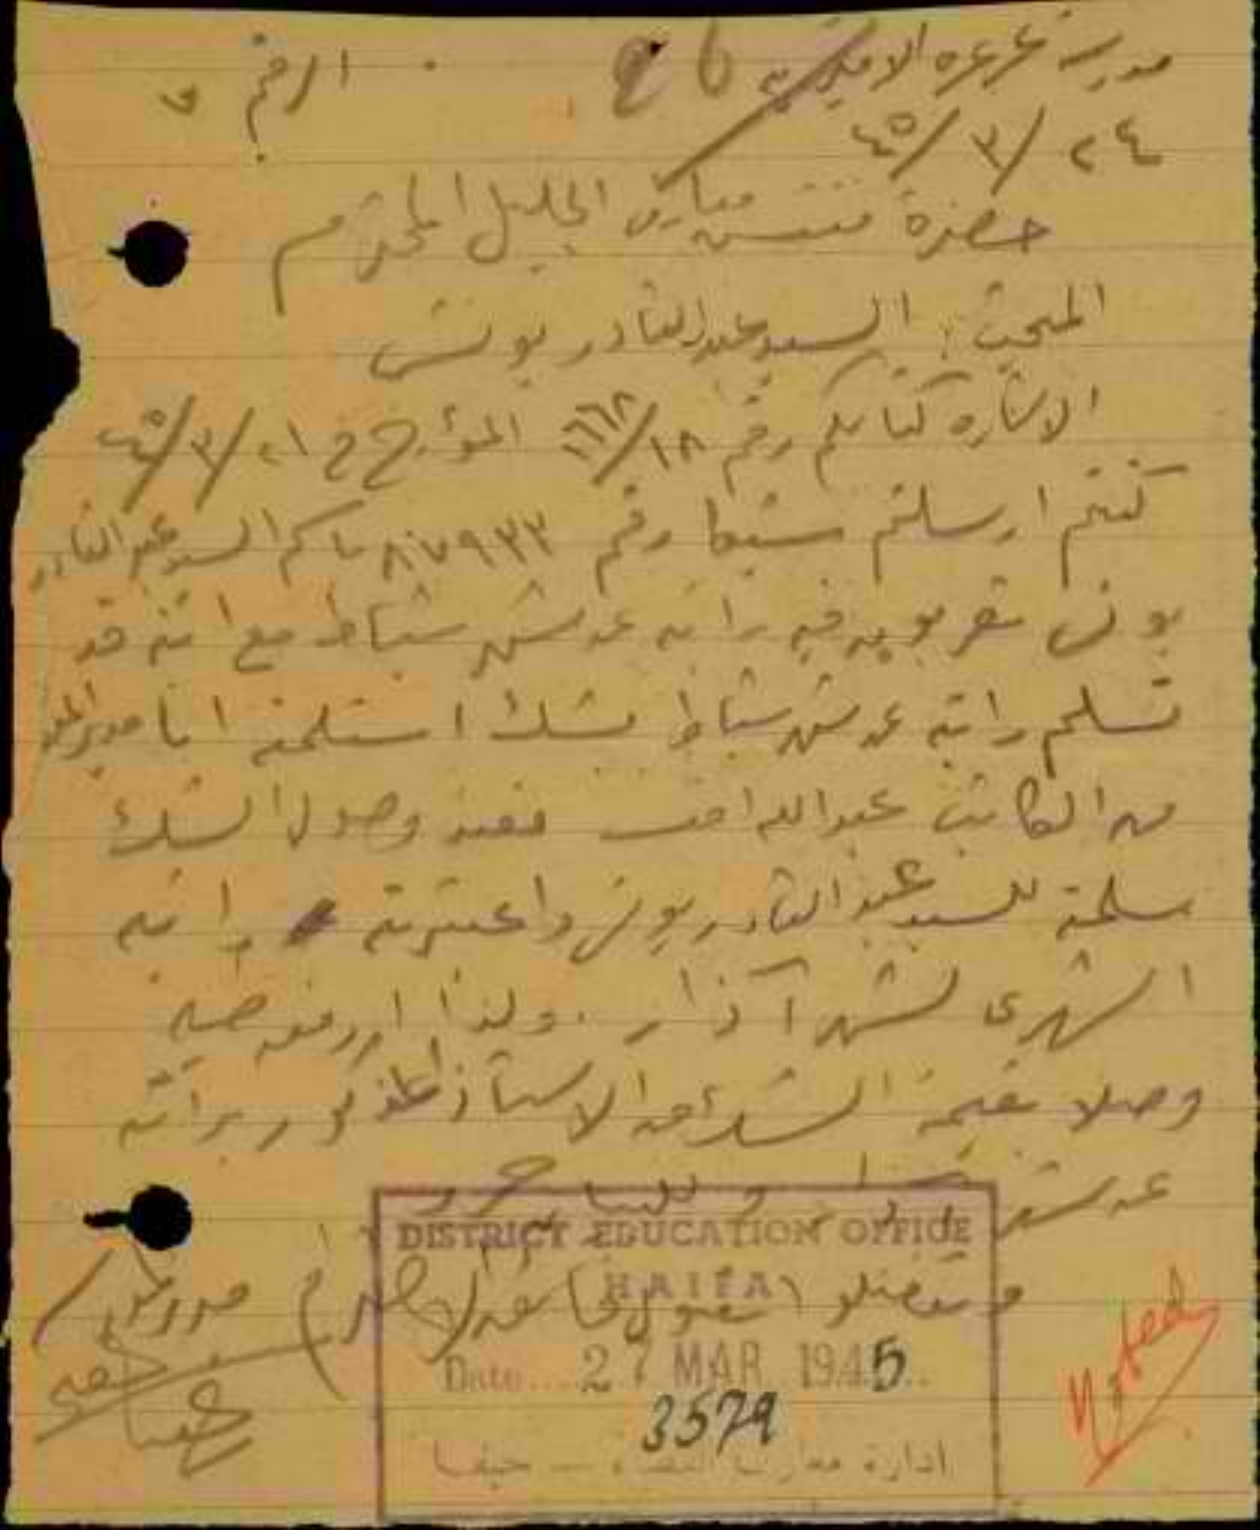 مدرسة عرعره الاميرية الرقم ٧
٢٤/٣/٤٥
حضرة مفتش معارف الجليل المحترم
المبحث: السيد عبد القادر يونس
الاشاره كتابكم رقم ١٨/٦٦٨ المؤرخ في ٢١/٣/٤٥
كنتم ارسلتم شيكا رقم ٨٧٩٣٣ باسم السيد عبد القادر
يونس تقريبا فيه راتبه عن شهر شباط مع انه قد
تسلم راتبه عن شهر شباط بشك استلمته انا مدير المدرسة
من الكاتب عبد الله افندي فعند وصول الشك
سلمته للسيد عبد القادر يونس واعتبرته راتبه
الشهري لشهر آذار . ولذا ارفق طيه
وصلا بقيمة الشك من الاستاذ المذكور براتبه
عن شهر
وتفضلوا بقبول فائق الاحترام
مدير المدرسة
DISTRICT EDUCATION OFFICE
HAIFA
Date 27 MAR 1945
3579
ادارة معارف اللواء – حيفا
Noted